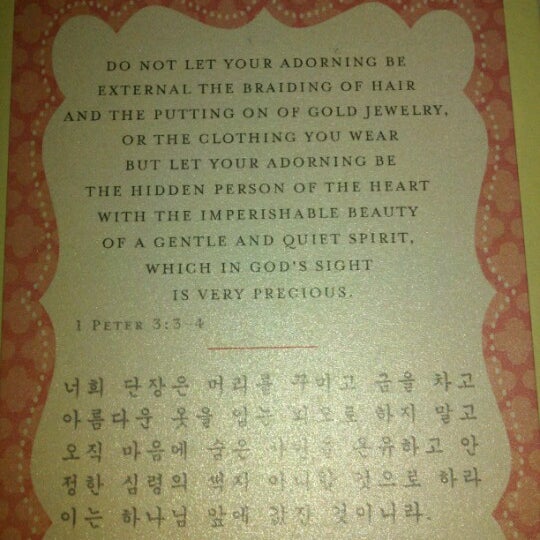 DO NOT LET YOUR ADORNING BE
EXTERNAL THE BRAIDING OF HAIR
AND THE PUTTING ON OF GOLD JEWELRY,
OR THE CLOTHING YOU WEAR
BUT LET YOUR ADORNING BE
THE HIDDEN PERSON OF THE HEART
WITH THE IMPERISHABLE BEAUTY
OF A GENTLE AND QUIET SPIRIT,
WHICH IN GOD'S SIGHT
IS VERY PRECIOUS.
1 PETER 3:3-4
너희 단장은 머리를 꾸미고 금을 차고
아름다운 옷을 입는 외모로 하지 말고
오직 마음에 숨은 사람을 온유하고 안
정한 심령의 썩지 아니할 것으로 하라
이는 하나님 앞에 값진 것이니라.